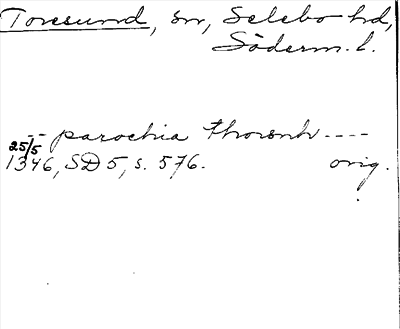 Toresund, sn, Selebo hd,
Söderm. l.
-- parochia thorsnh ----
25/5
1346, SD 5, s. 576. orig.